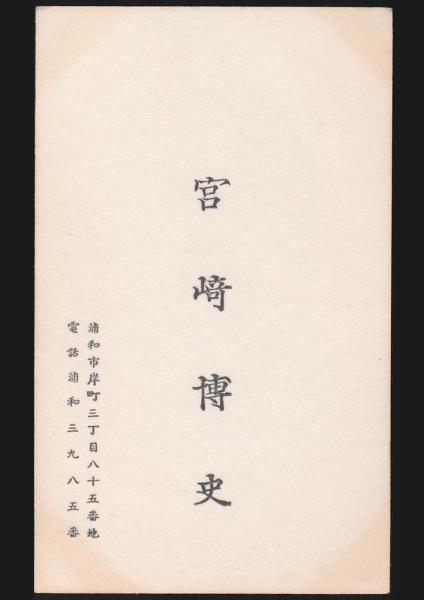 宮﨑博史
浦和市岸町三丁目八十五番地
電話浦和三九八五番